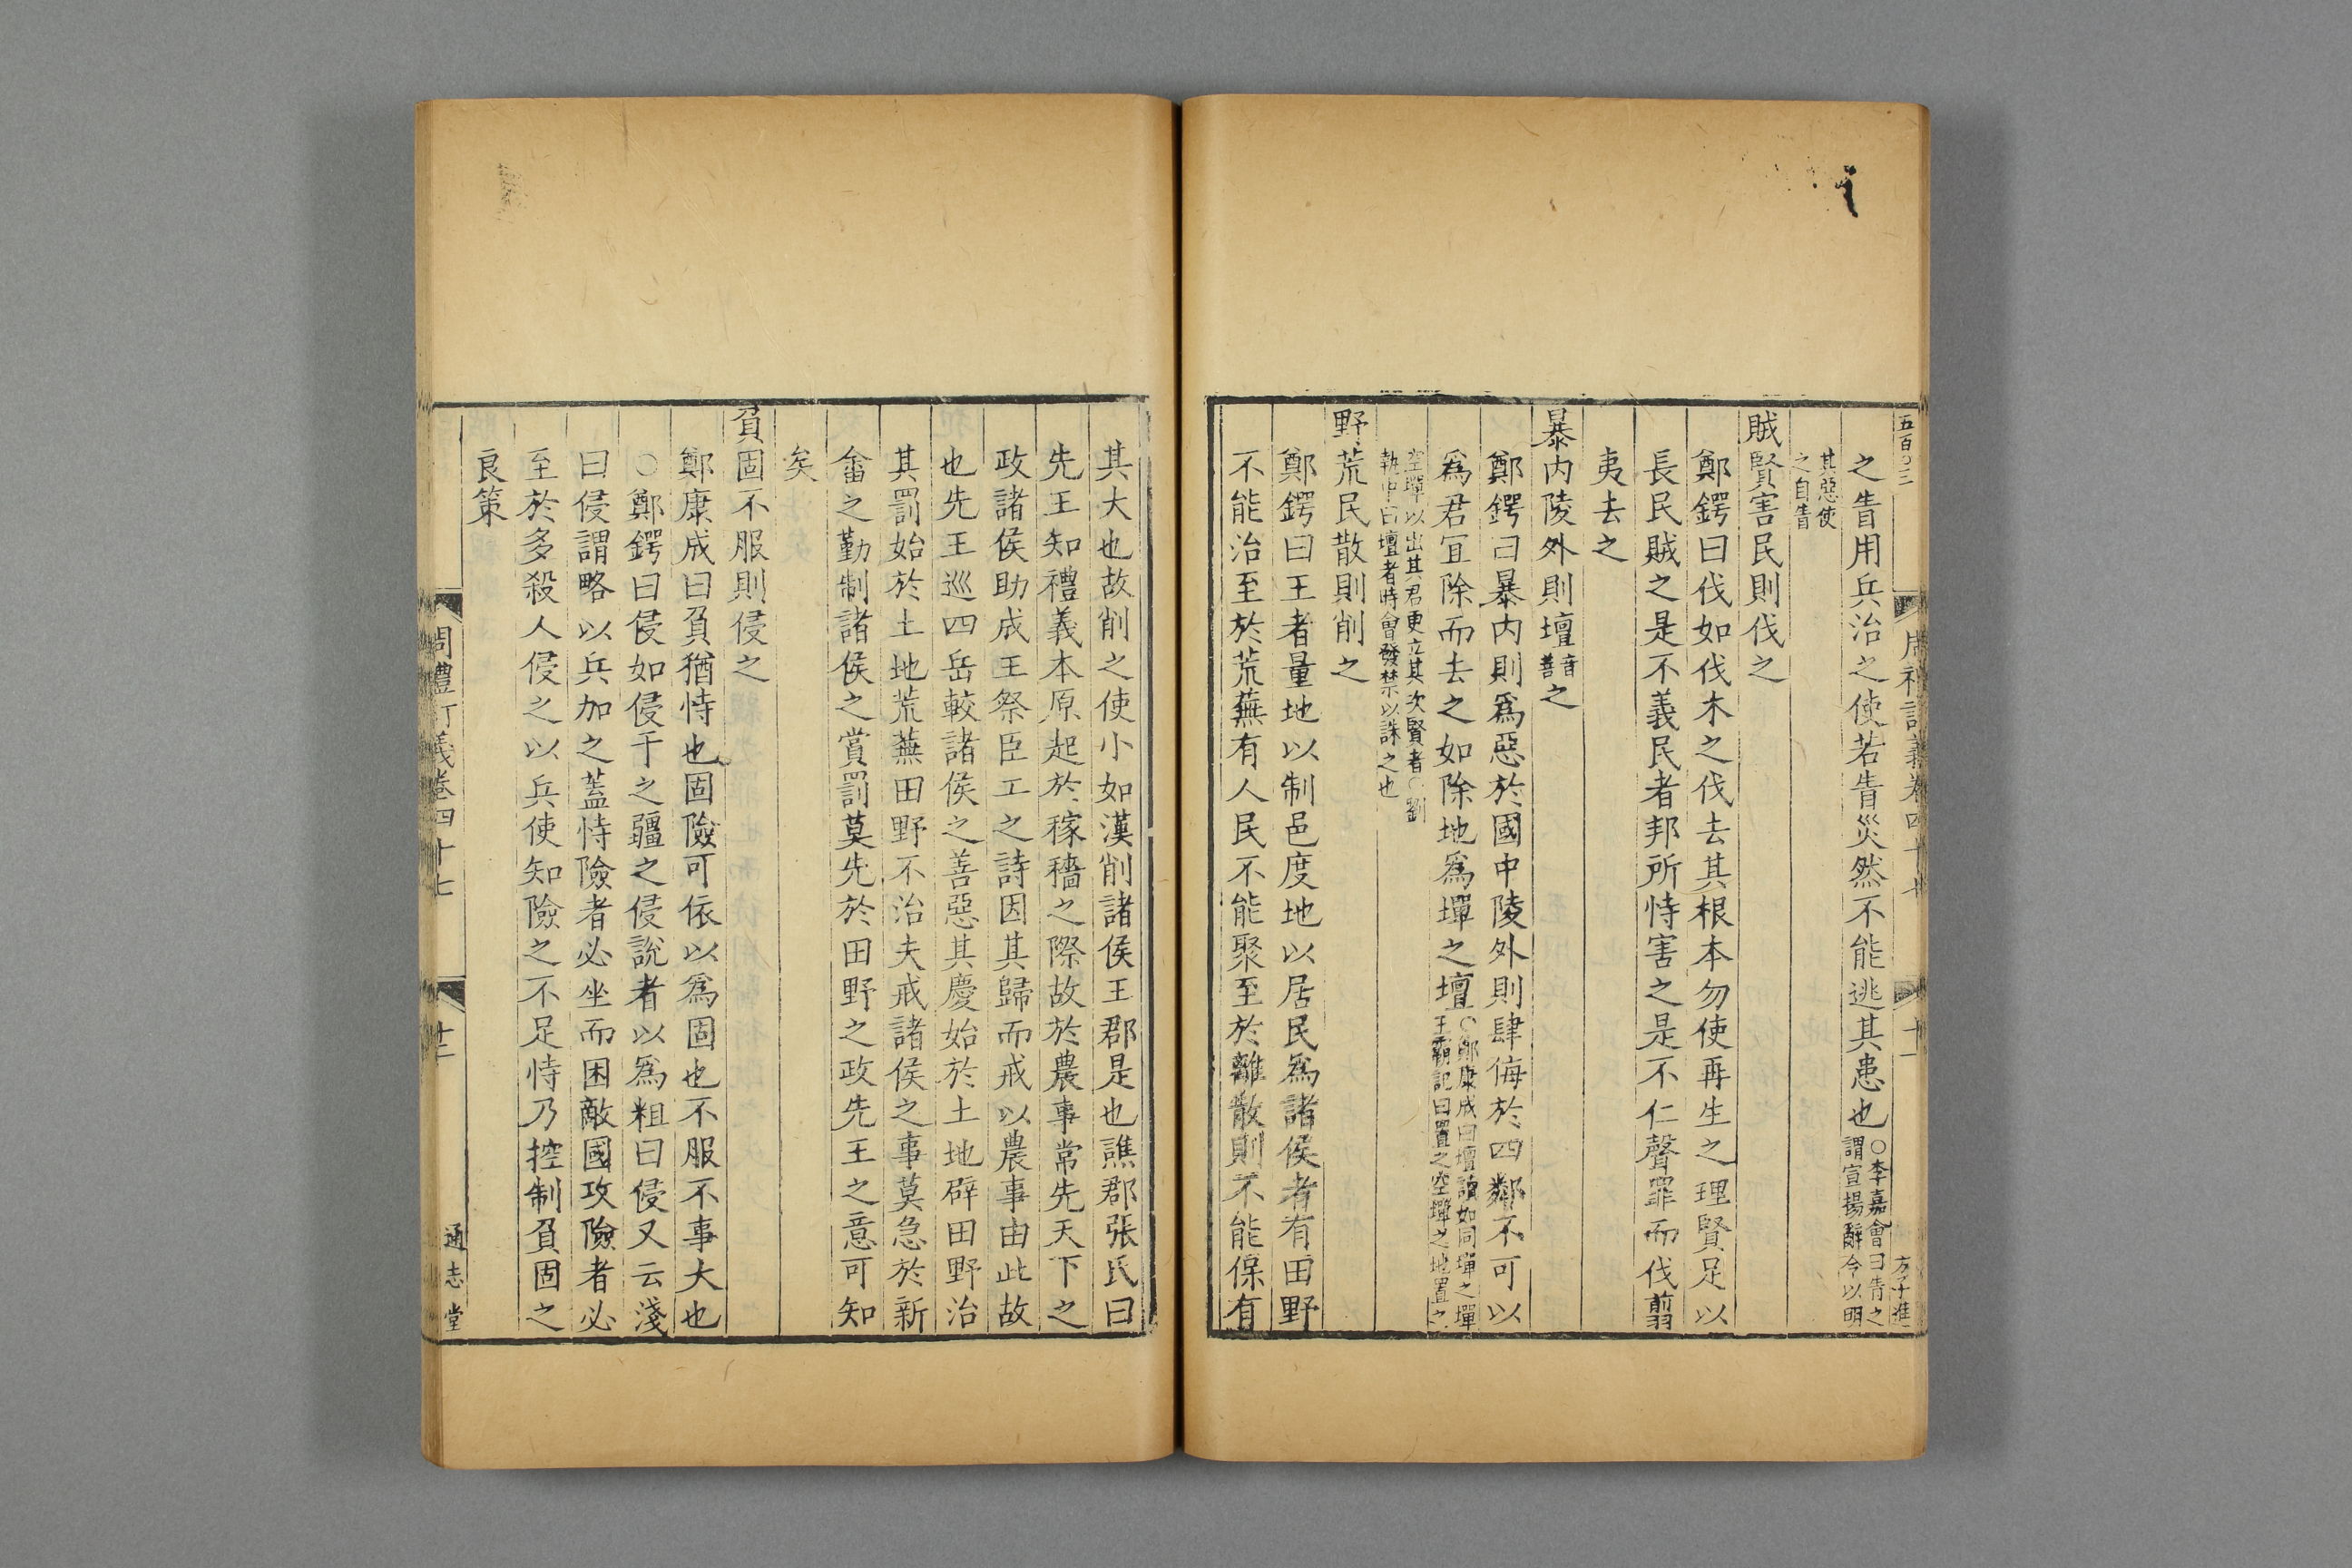 五百〇三
之眚用兵治之使若眚災然不能逃其患也○李嘉會曰眚之謂宣揚辭令以明
其惡使之自眚
賊賢害民則伐之
鄭鍔曰伐如伐木之伐去其根本勿使再生之理賢足以
長民賊之是不義民者邦所恃害之是不仁聲罪而伐翦
夷去之
暴內陵外則壇音善之
鄭鍔曰暴內則爲惡於國中陵外則肆侮於四鄰不可以
爲君宜除而去之如除地爲墠之壇○鄭康成曰壇讀如同墠之墠王霸記曰置之空墠之地置之
空墠以出其君更立其次賢者○劉執中曰壇者時會發禁以誅之也
野荒民散則削之
鄭鍔曰王者量地以制邑度地以居民爲諸侯者有田野
不能治至於荒蕪有人民不能聚至於離散則不能保有
其大也故削之使小如漢削諸侯王郡是也譙郡張氏曰
先王知禮義本原起於稼穡之際故於農事常先天下之
政諸侯助成王祭臣工之詩因其歸而戒以農事由此故
也先王巡四岳較諸侯之善惡其慶始於土地辟田野治
其罰始於土地荒蕪田野不治夫戒諸侯之事莫急於新
畬之勤制諸侯之賞罰莫先於田野之政先王之意可知
矣
負固不服則侵之
鄭康成曰負猶恃也固險可依以爲固也不服不事大也
○鄭鍔曰侵如侵于之疆之侵說者以爲粗曰侵又云淺
曰侵謂略以兵加之蓋恃險者必坐而困敵國攻險者必
至於多殺人侵之以兵使知險之不足恃乃控制負固之
良策
周禮訂義卷四十七
通志堂